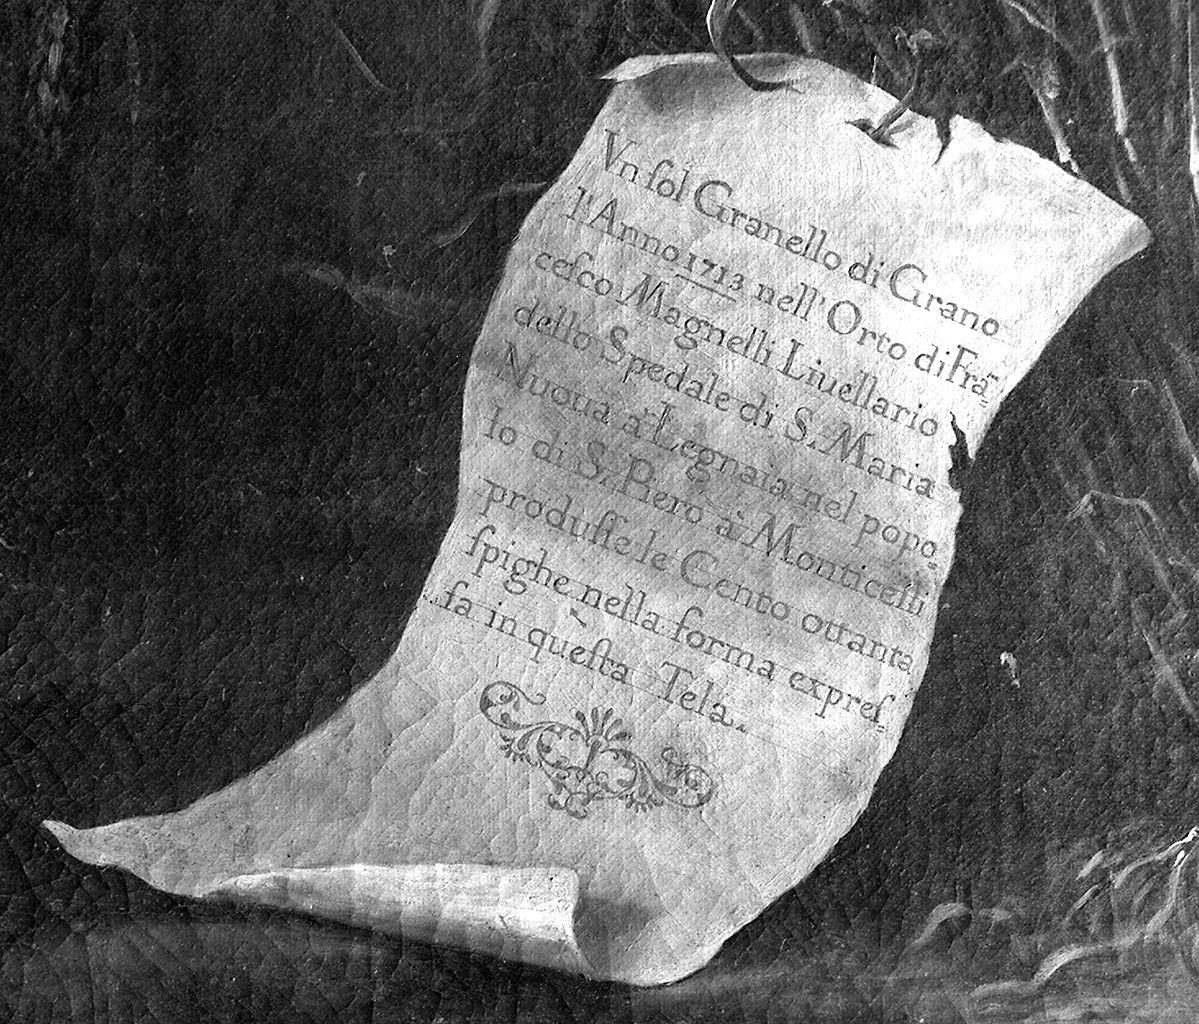 Vn ſol Granello di Grano
l'Anno 1713 nell' Orto di Fra-
ceſco Magnelli Liuellario
dello Spedale di S. Maria
Nuoua à Legnaia nel popo-
lo di S. Piero à Monticelli
produſſe le Cento ottanta
ſpighe nella forma expreſ-
ſa in queſta Tela.